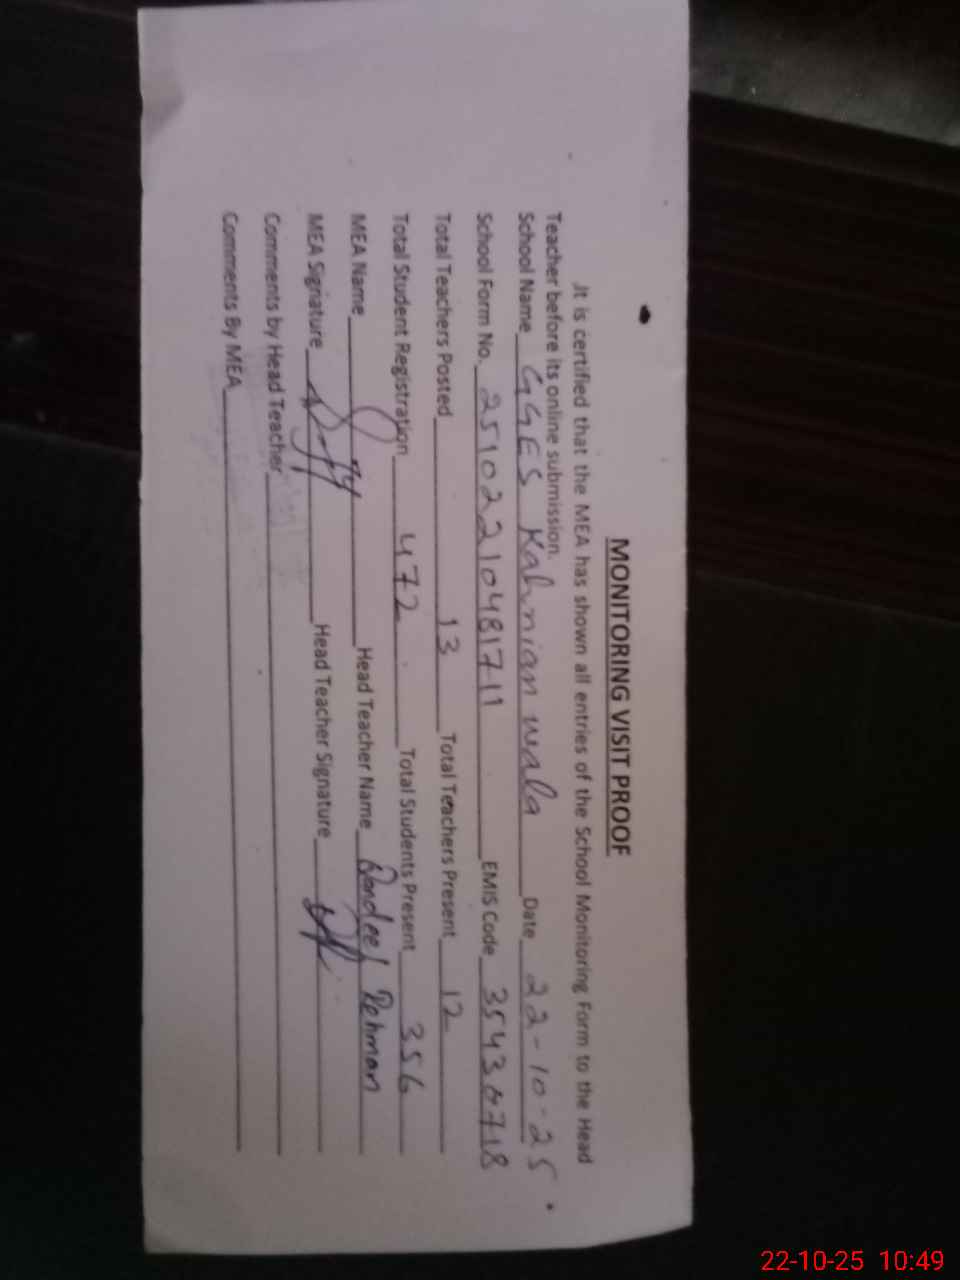 MONITORING VISIT PROOF
It is certified that the MEA has shown all entries of the School Monitoring Form to the Head
Teacher before its online submission.
School Name GGES Kahnian wala Date 22-10-25
School Form No. 25102210481711 EMIS Code
Total Teachers Posted 13 Total Teachers Present 12
Total Student Registration 472 Total Students Present 356
MEA Name Head Teacher Name Rehman
MEA Signature Head Teacher Signature
Comments by Head Teacher
Comments By MEA
22-10-25 10:49